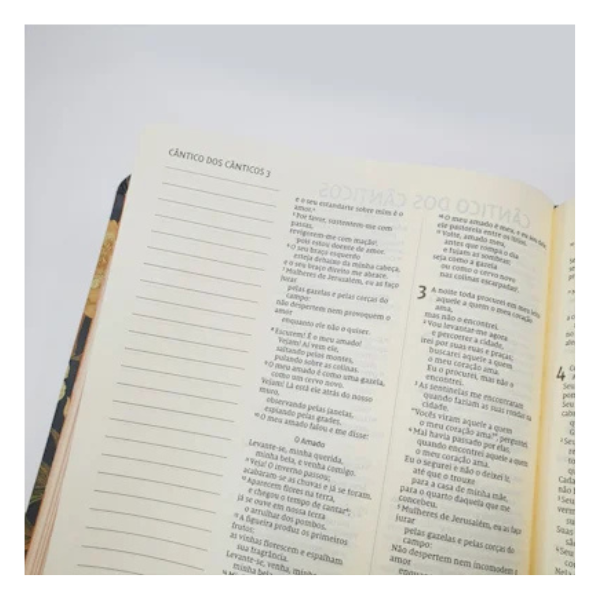 CÂNTICO DOS CÂNTICOS 3
e o seu estandarte sobre mim é o
amor.
⁵ Por favor, sustentem-me com
passas,
revigorem-me com maçãs!
pois estou doente de amor.
⁶ O seu braço esquerdo
esteja debaixo da minha cabeça,
e o seu braço direito me abrace.
⁷ Mulheres de Jerusalém, eu as faço
jurar
pelas gazelas e pelas corças do
campo:
não despertem nem provoquem o
amor
enquanto ele não o quiser.
⁸ Escutem! É o meu amado!
Vejam! Aí vem ele,
saltando pelos montes,
pulando sobre as colinas.
⁹ O meu amado é como uma gazela,
como um cervo novo.
Vejam! Lá está ele atrás do nosso
muro,
observando pelas janelas,
espiando pelas grades.
¹⁰ O meu amado falou e me disse:
O Amado
Levante-se, minha querida,
minha bela, e venha comigo.
¹¹ Veja! O inverno passou;
acabaram-se as chuvas e já se foram.
¹² Aparecem flores na terra,
e chegou o tempo de cantar;
já se ouve em nossa terra
o arrulhar dos pombos.
¹³ A figueira produz os primeiros
frutos;
as vinhas florescem e espalham
sua fragrância.
Levante-se, venha, minha
minha bela
¹⁶ O meu amado é meu, e eu sou dele;
ele pastoreia entre os lírios.
¹⁷ Volte, amado meu,
antes que rompa o dia
e fujam as sombras;
seja como a gazela
ou como o cervo novo
nas colinas escarpadas.
3 A noite toda procurei em meu leito
aquele a quem o meu coração
ama,
mas não o encontrei.
² Vou levantar-me agora
e percorrer a cidade,
irei por suas ruas e praças;
buscarei aquele a quem
o meu coração ama.
Eu o procurei, mas não o
encontrei.
³ As sentinelas me encontraram
quando faziam as suas rondas na
cidade.
"Vocês viram aquele a quem
o meu coração ama?", perguntei.
⁴ Mal havia passado por elas,
quando encontrei aquele a quem
o meu coração ama.
Eu o segurei e não o deixei ir,
até que o trouxe
para a casa de minha mãe,
para o quarto daquela que me
concebeu.
⁵ Mulheres de Jerusalém, eu as faço
jurar
pelas gazelas e pelas corças do
campo:
Não despertem nem incomodem o
amor
4